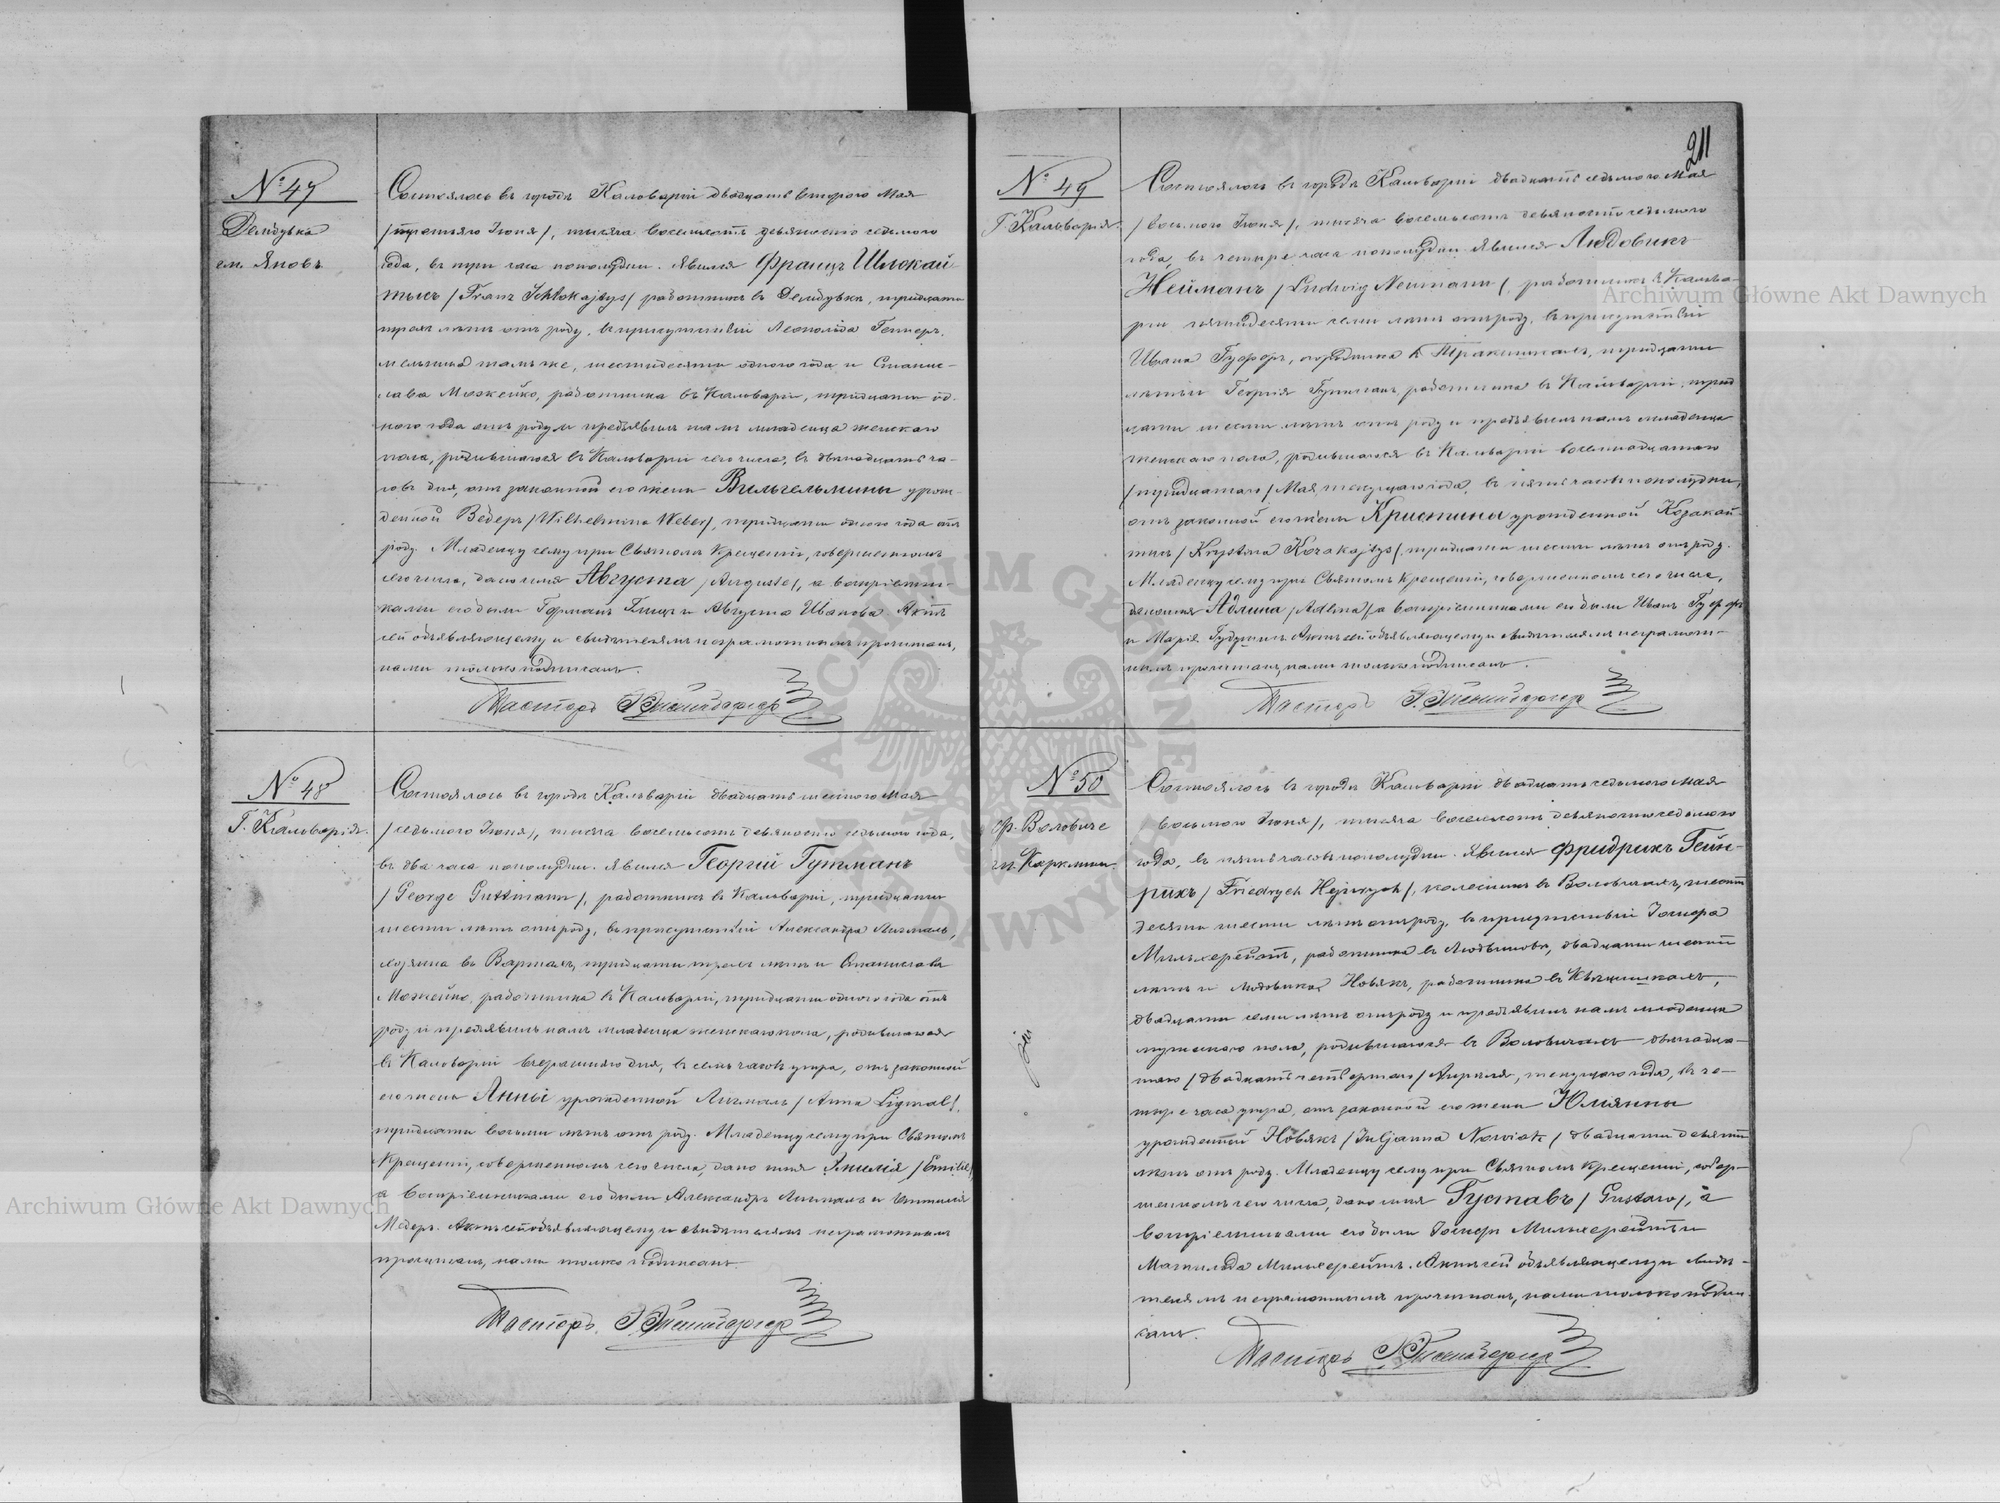 № 47
Демдувка
см. Яновъ
Состоялось въ городѣ Кальваріи двадцать втораго Мая
/третьяго Іюня/, тысяча восемьсотъ девяносто седьмого
года, въ три часа пополудни. Явился Францъ Шлокай-
тысъ /Franz Schlokajtys/ работникъ въ Демдувкѣ, тридцати
трехъ лѣтъ отъ роду, въ присутствіи Леопольда Геннеръ,
мельника тамъ же, шестидесяти одного года и Станис-
лава Можейко, работника въ Кальваріи, тридцати од-
ного года отъ роду и предъявилъ намъ младенца женскаго
пола, родившагося въ Кальваріи сего числа, въ двѣнадцать ча-
совъ дня, отъ законной его жены Вильгельмины урож-
денной Веберъ /Wilhelmina Weber/, тридцати одного года отъ
роду. Младенцу сему при Святомъ Крещеніи, совершенномъ
сего числа, дано имя Августа /Auguste/, а воспріемни-
ками его были Германъ и Августа Иванова Актъ
сей объявляющему и свидѣтелямъ неграмотнымъ прочитанъ,
нами только подписанъ.
Пасторъ
№ 48
Г. Кальварія.
Состоялось въ городѣ Кальваріи двадцать шестого Мая
/седьмого Іюня/, тысяча восемьсотъ девяносто седьмого года,
въ два часа пополудни. Явился Георгій Гутманъ
/George Guttmann/, работникъ въ Кальваріи, тридцати
шести лѣтъ отъ роду, въ присутствіи Александра Лигмаль,
хозяина въ тридцати трехъ лѣтъ и Станислава
Можейко, работника въ Кальваріи, тридцати одного года отъ
роду и предъявилъ намъ младенца женскаго пола, родившагося
въ Кальваріи вчерашняго дня, въ семь часовъ утра, отъ законной
его жены Анны урожденной Лигмаль /Anna Ligmal/,
тридцати восьми лѣтъ отъ роду. Младенцу сему при Святомъ
Крещеніи, совершенномъ сего числа, дано имя Эмилія /Emilie/
а воспріемниками его были Александръ Лигмаль и
Медеръ. Актъ сей объявляющему и свидѣтелямъ неграмотнымъ
прочитанъ, нами только подписанъ.
Пасторъ
211
№ 49
Г. Кальварія.
Состоялось въ городѣ Кальваріи двадцать седьмого Мая
/восьмого Іюня/, тысяча восемьсотъ девяносто седьмого
года, въ четыре часа пополудни. Явился Людовикъ
Нейманъ /Ludwig Neumann/, работникъ въ Кальва-
ріи пятидесяти семи лѣтъ отъ роду, въ присутствіи
Ивана Гуфферъ, тридцати
лѣтъ и Георгія Гутманъ, работника въ Кальваріи, трид-
цати шести лѣтъ отъ роду и предъявилъ намъ младенца
женскаго пола, родившагося въ Кальваріи восемнадцатаго
/тридцатаго/ Мая, текущаго года, въ пять часовъ пополудни,
отъ законной его жены Кристины урожденной Козакай-
тысъ /Krystina Kozakajtys/, тридцати шести лѣтъ отъ роду.
Младенцу сему при Святомъ Крещеніи, совершенномъ сего числа,
дано имя Адлина /Adlina/ а воспріемниками его были Иванъ Гуфферъ
и Марія Актъ сей объявляющему и свидѣтелямъ неграмот-
нымъ прочитанъ, нами только подписанъ.
Пасторъ
№ 50
ф. Воловиче
гм. Каркмины
Состоялось въ городѣ Кальваріи двадцать седьмого Мая
/восьмого Іюня/, тысяча восемьсотъ девяносто седьмого
года, въ пять часовъ пополудни. Явился Фридрихъ Гейн-
рихъ /Friedrych Hejnrych/, колесникъ въ Воловичахъ, шести
десяти шести лѣтъ отъ роду, въ присутствіи Іосифа
Мильхерейтъ, работника въ Людвиновѣ, двадцати шести
лѣтъ и Людовика Новякъ, работника въ
двадцати семи лѣтъ отъ роду и предъявилъ намъ младенца
мужскаго пола, родившагося въ Воловичахъ двѣнадца-
таго /двадцать четвертаго/ Апрѣля, текущаго года, въ че-
тыре часа утра, отъ законной его жены Юліянны
урожденной Новякъ /Juljanna Nowiak/ двадцати девяти
лѣтъ отъ роду. Младенцу сему при Святомъ Крещеніи, совер-
шенномъ сего числа, дано имя Густавъ /Gustaw/, а
воспріемниками его были Іосифъ Мильхерейтъ и
Матильда Мильхерейтъ. Актъ сей объявляющему и свидѣ-
телямъ неграмотнымъ прочитанъ, нами только подпи-
санъ.
Пасторъ
Archiwum Główne Akt Dawnych
Archiwum Główne Akt Dawnych
ARCHIWUM GŁÓWNE AKT DAWNYCH